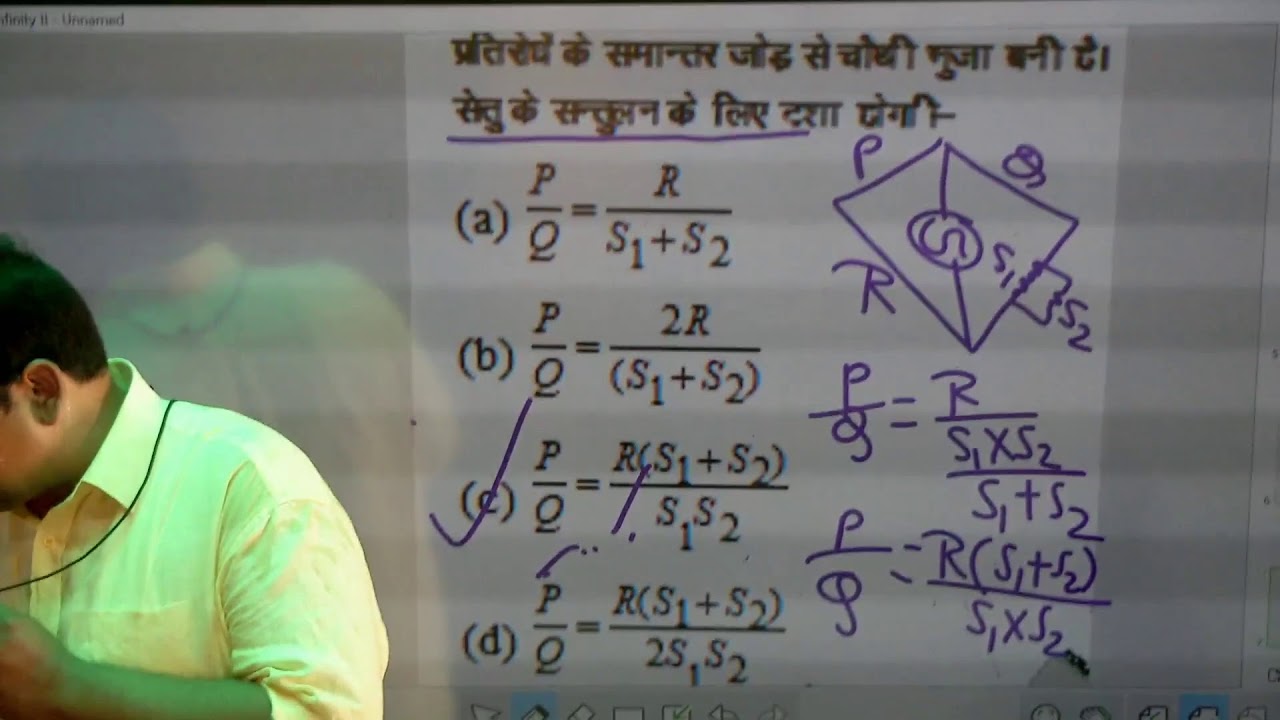 nfinity II - Unnamed
प्रतिरोधों के समान्तर जोड़ से चौथी भुजा बनी है।
सेतु के सन्तुलन के लिए दशा होगी-
(a) P/Q = R/S₁+S₂
(b) P/Q = 2R/(S₁+S₂)
(c) P/Q = R(S₁+S₂)/S₁S₂
(d) P/Q = R(S₁+S₂)/2S₁S₂
P Q
R S₁ S₂
P/Q = R/S₁×S₂/S₁+S₂
P/Q = R(S₁+S₂)/S₁×S₂